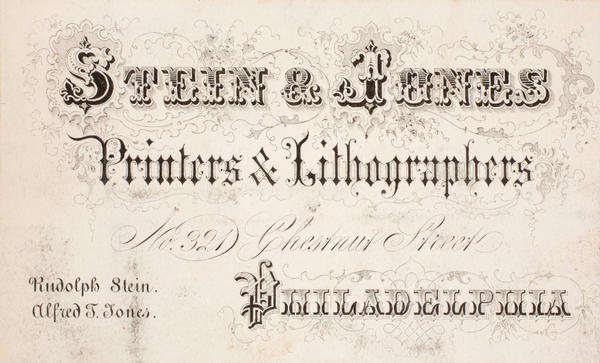 STEIN & JONES
Printers & Lithographers
No. 321 Chestnut Street
PHILADELPHIA
Rudolph Stein.
Alfred T. Jones.